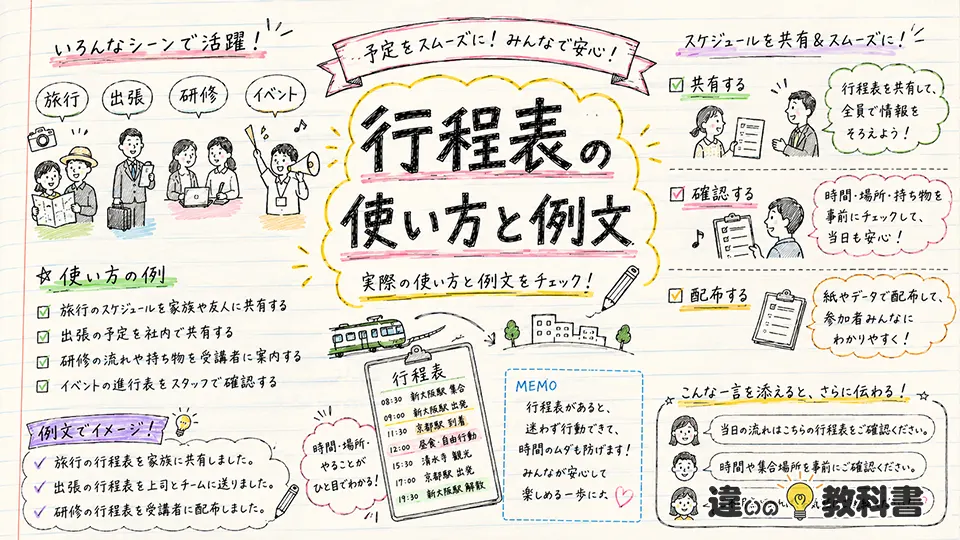 いろんなシーンで活躍！
旅行
出張
研修
イベント
予定をスムーズに！みんなで安心！
行程表の
使い方と例文
実際の使い方と例文をチェック！
スケジュールを共有&スムーズに！
共有する
行程表を共有して、
全員で情報を
そろえよう！
確認する
時間・場所・持ち物を
事前にチェックして、
当日も安心！
配布する
紙やデータで配布して、
参加者みんなに
わかりやすく！
使い方の例
旅行のスケジュールを家族や友人に共有する
出張の予定を社内で共有する
研修の流れや持ち物を受講者に案内する
イベントの進行表をスタッフで確認する
例文でイメージ！
旅行の行程表を家族に共有しました。
出張の行程表を上司とチームに送りました。
研修の行程表を受講者に配布しました。
時間・場所・
やることが
ひと目でわかる！
行程表
08:30 新大阪駅 集合
09:00 新大阪駅 出発
11:30 京都駅 到着
12:00 昼食・自由行動
15:30 清水寺 観光
17:00 京都駅 出発
19:30 新大阪駅 解散
MEMO
行程表があると、
迷わず行動できて、
時間のムダも防げます！
みんなが安心して
楽しめる一歩に
こんな一言を添えると、さらに伝わる！
当日の流れはこちらの行程表をご確認ください。
時間や集合場所を事前にご確認ください。
違いの教科書